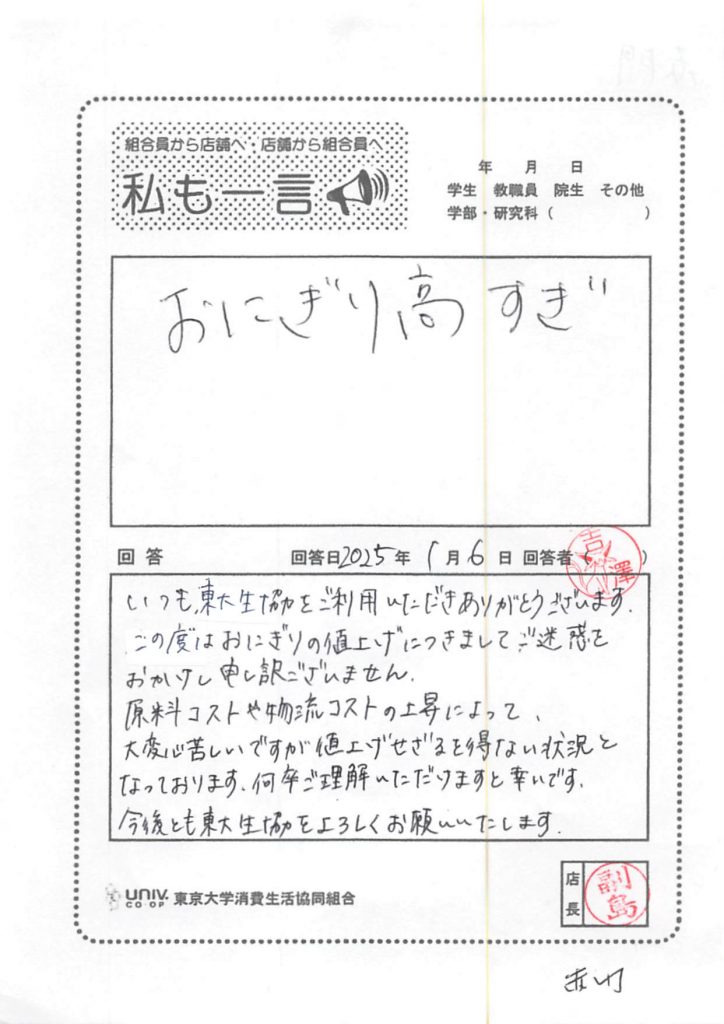 組合員から店舗へ・店舗から組合員へ
私も一言
年 月 日
学生 教職員 院生 その他
学部・研究科( )
おにぎり高すぎ
回答 回答日2025年1月6日 回答者( )
吉澤
いつも東大生協をご利用いただきありがとうございます.
この度はおにぎりの値上げにつきましてご迷惑を
おかけし申し訳ございません.
原料コストや物流コストの上昇によって、
大変心苦しいですが値上げせざるを得ない状況と
なっております.何卒ご理解いただけますと幸いです.
今後とも東大生協をよろしくお願いいたします.
UNIV. CO-OP 東京大学消費生活協同組合
店長 副島
赤門